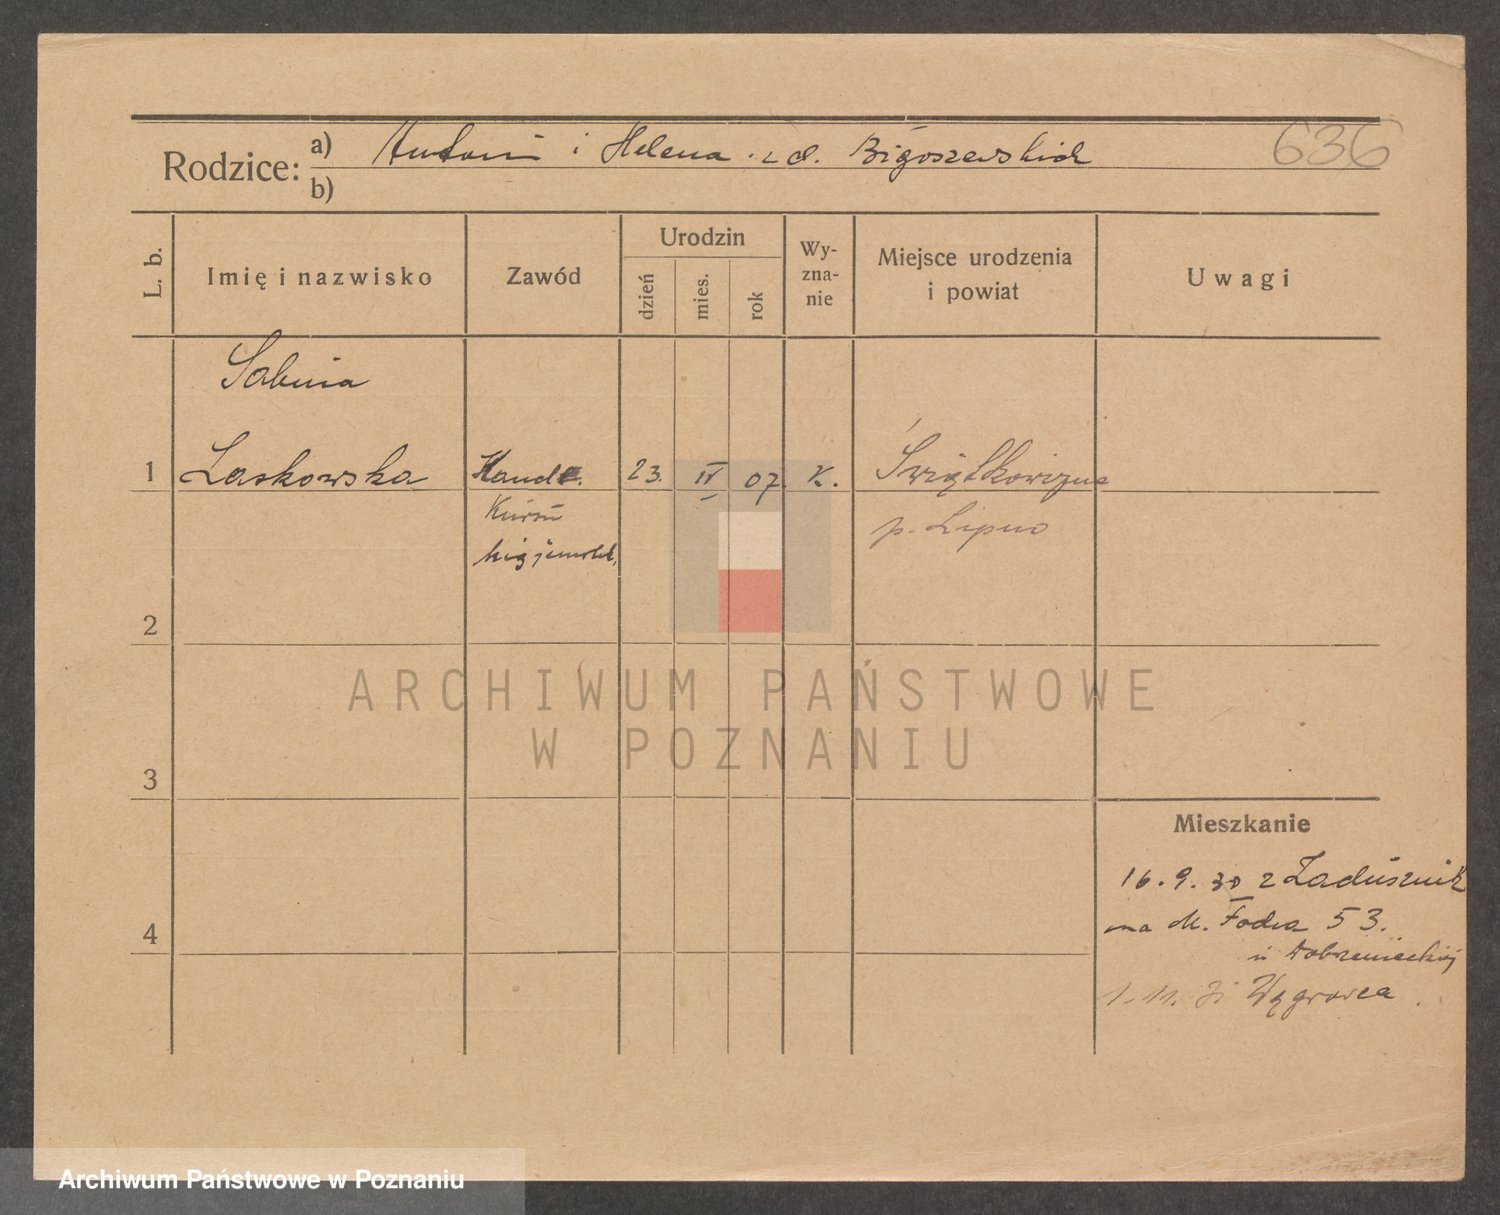 Rodzice: a) Antoni i Helena z d. Bigoszewskich
636
b)
L. b.
Imię i nazwisko
Zawód
Urodzin
dzień
mies.
rok
Wy-
zna-
nie
Miejsce urodzenia
i powiat
Uwagi
Sabina
1 Laskowska
Kand.
23. IV 07. K.
Świątkowizna
Kursu
p. Lipno
2
3
4
Mieszkanie
16. 9. 30 z Zadusznik
na M. Focha 53.
u Dobrzenieckiej
1. 11. Wągrowca
ARCHIWUM PAŃSTWOWE
W POZNANIU
Archiwum Państwowe w Poznaniu